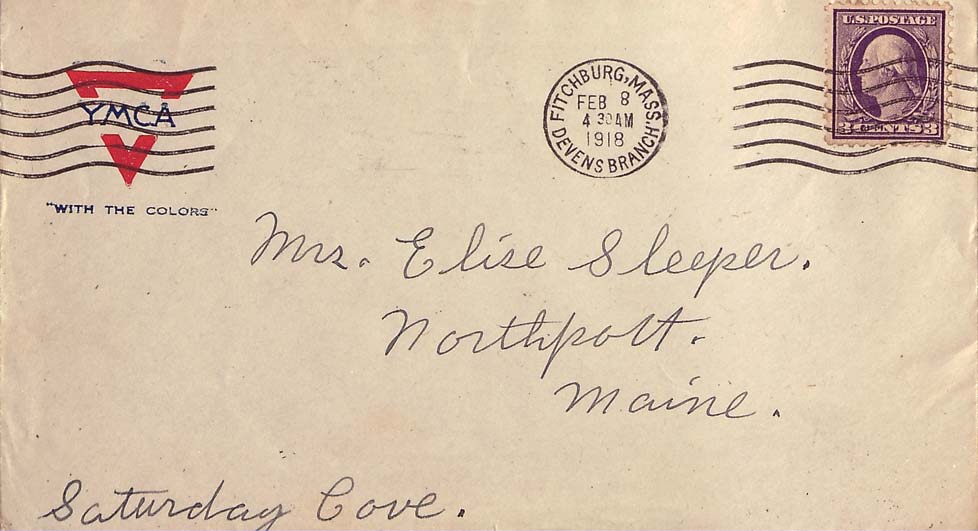 U.S. POSTAGE
3 CENTS 3
YMCA
"WITH THE COLORS"
FITCHBURG, MASS.
FEB 8
4 30 AM
1918
DEVENS BRANCH
Mrs. Elise Sleeper.
Northport.
Maine.
Saturday Cove.